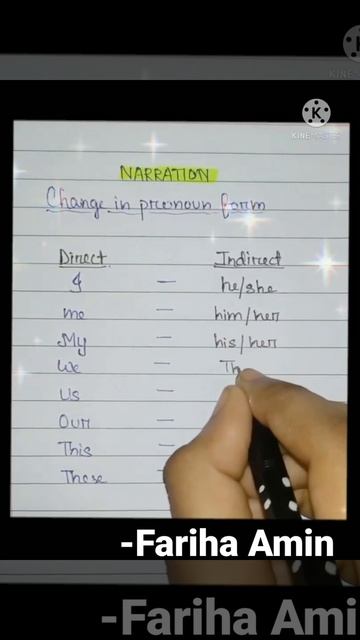 KINEMASTER
NARRATION
Change in pronoun form
Direct Indirect
I — he/she
me — him/her
My — his/her
We — Th
Us —
Our —
This —
These —
-Fariha Amin
-Fariha Ami